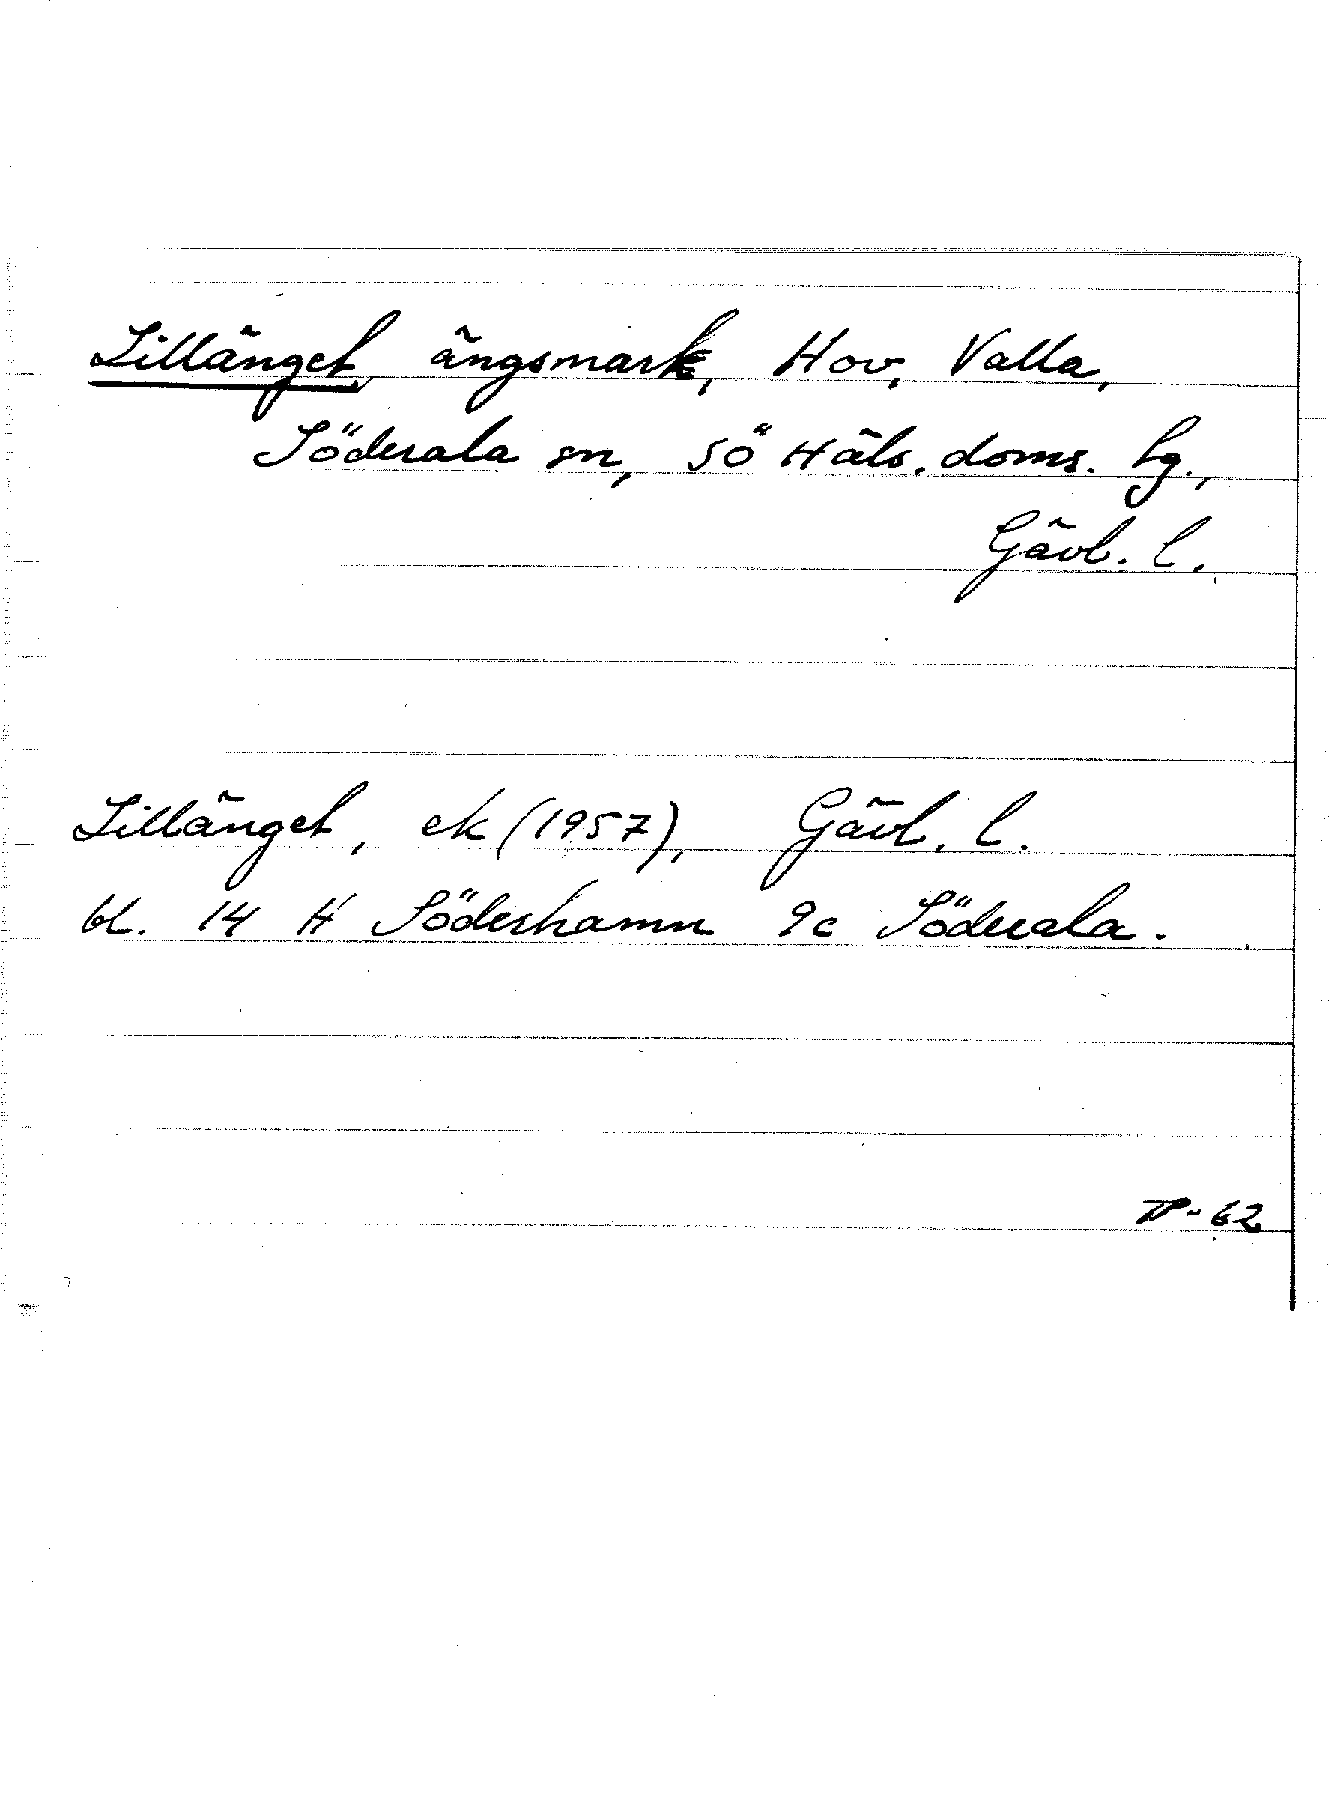 Lillänget, ängsmark, Hov, Valla,
Söderala sn, SÖ Häls. doms. tg.,
Gävl. l.
Lillänget, ek (1957), Gävl. l.
bl. 14 H Söderhamn 9c Söderala.
-62